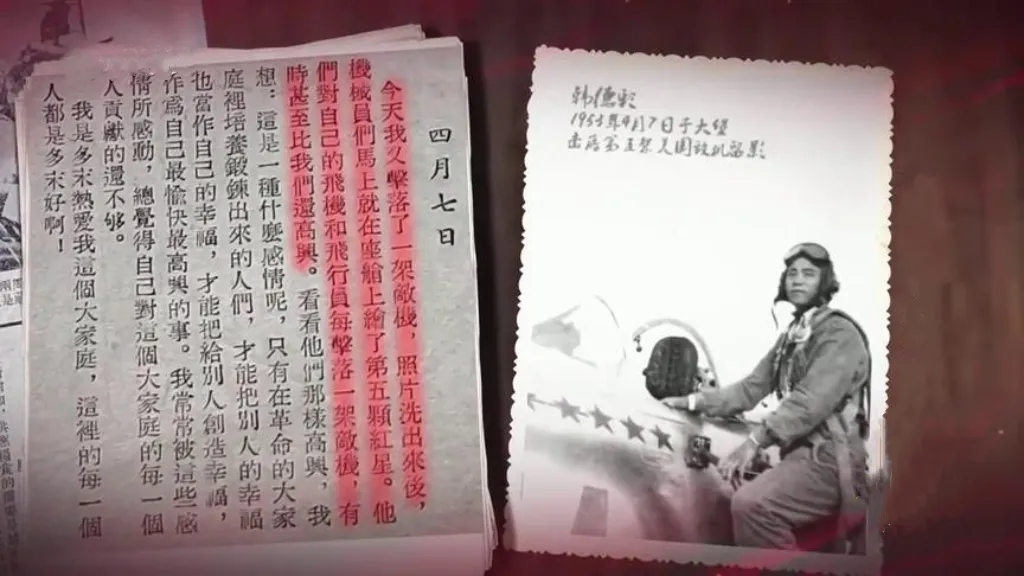 四月七日
今天我又擊落了一架敵機，照片洗出來後，
機械員們馬上就在座艙上繪了第五顆紅星。他
們對自己的飛機和飛行員每擊落一架敵機，有
時甚至比我們還高興。看看他們那樣高興，我
想：這是一種什麽感情呢，只有在革命的大家
庭裡培養鍛鍊出來的人們，才能把別人的幸福
也當作自己的幸福，才能把給別人創造幸福，
作爲自己最愉快最高興的事。我常常被這些感
情所感動，總覺得自己對這個大家庭的每一個
人貢獻的還不够。
我是多末熱愛我這個大家庭，這裡的每一個
人都是多末好啊！
韩德彩
1953年4月7日于大堡
击落第五架美国敌机留影